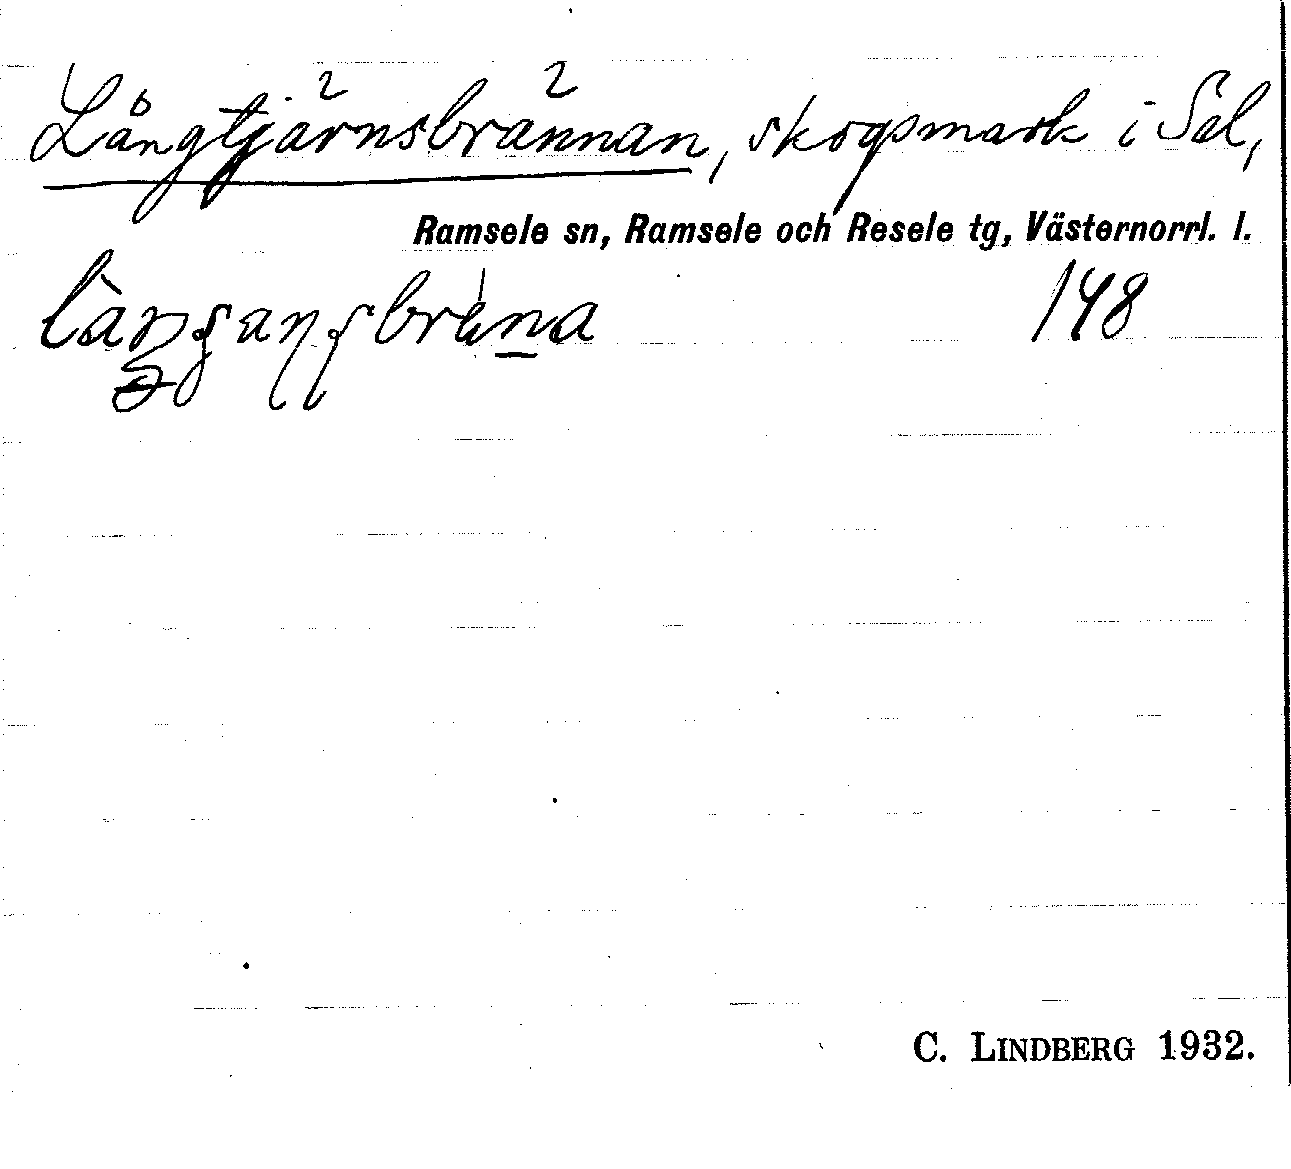 Långtjärnsbrännan, skogsmark i Sel,
Ramsele sn, Ramsele och Resele tg, Västernorrl. l.
148
C. LINDBERG 1932.